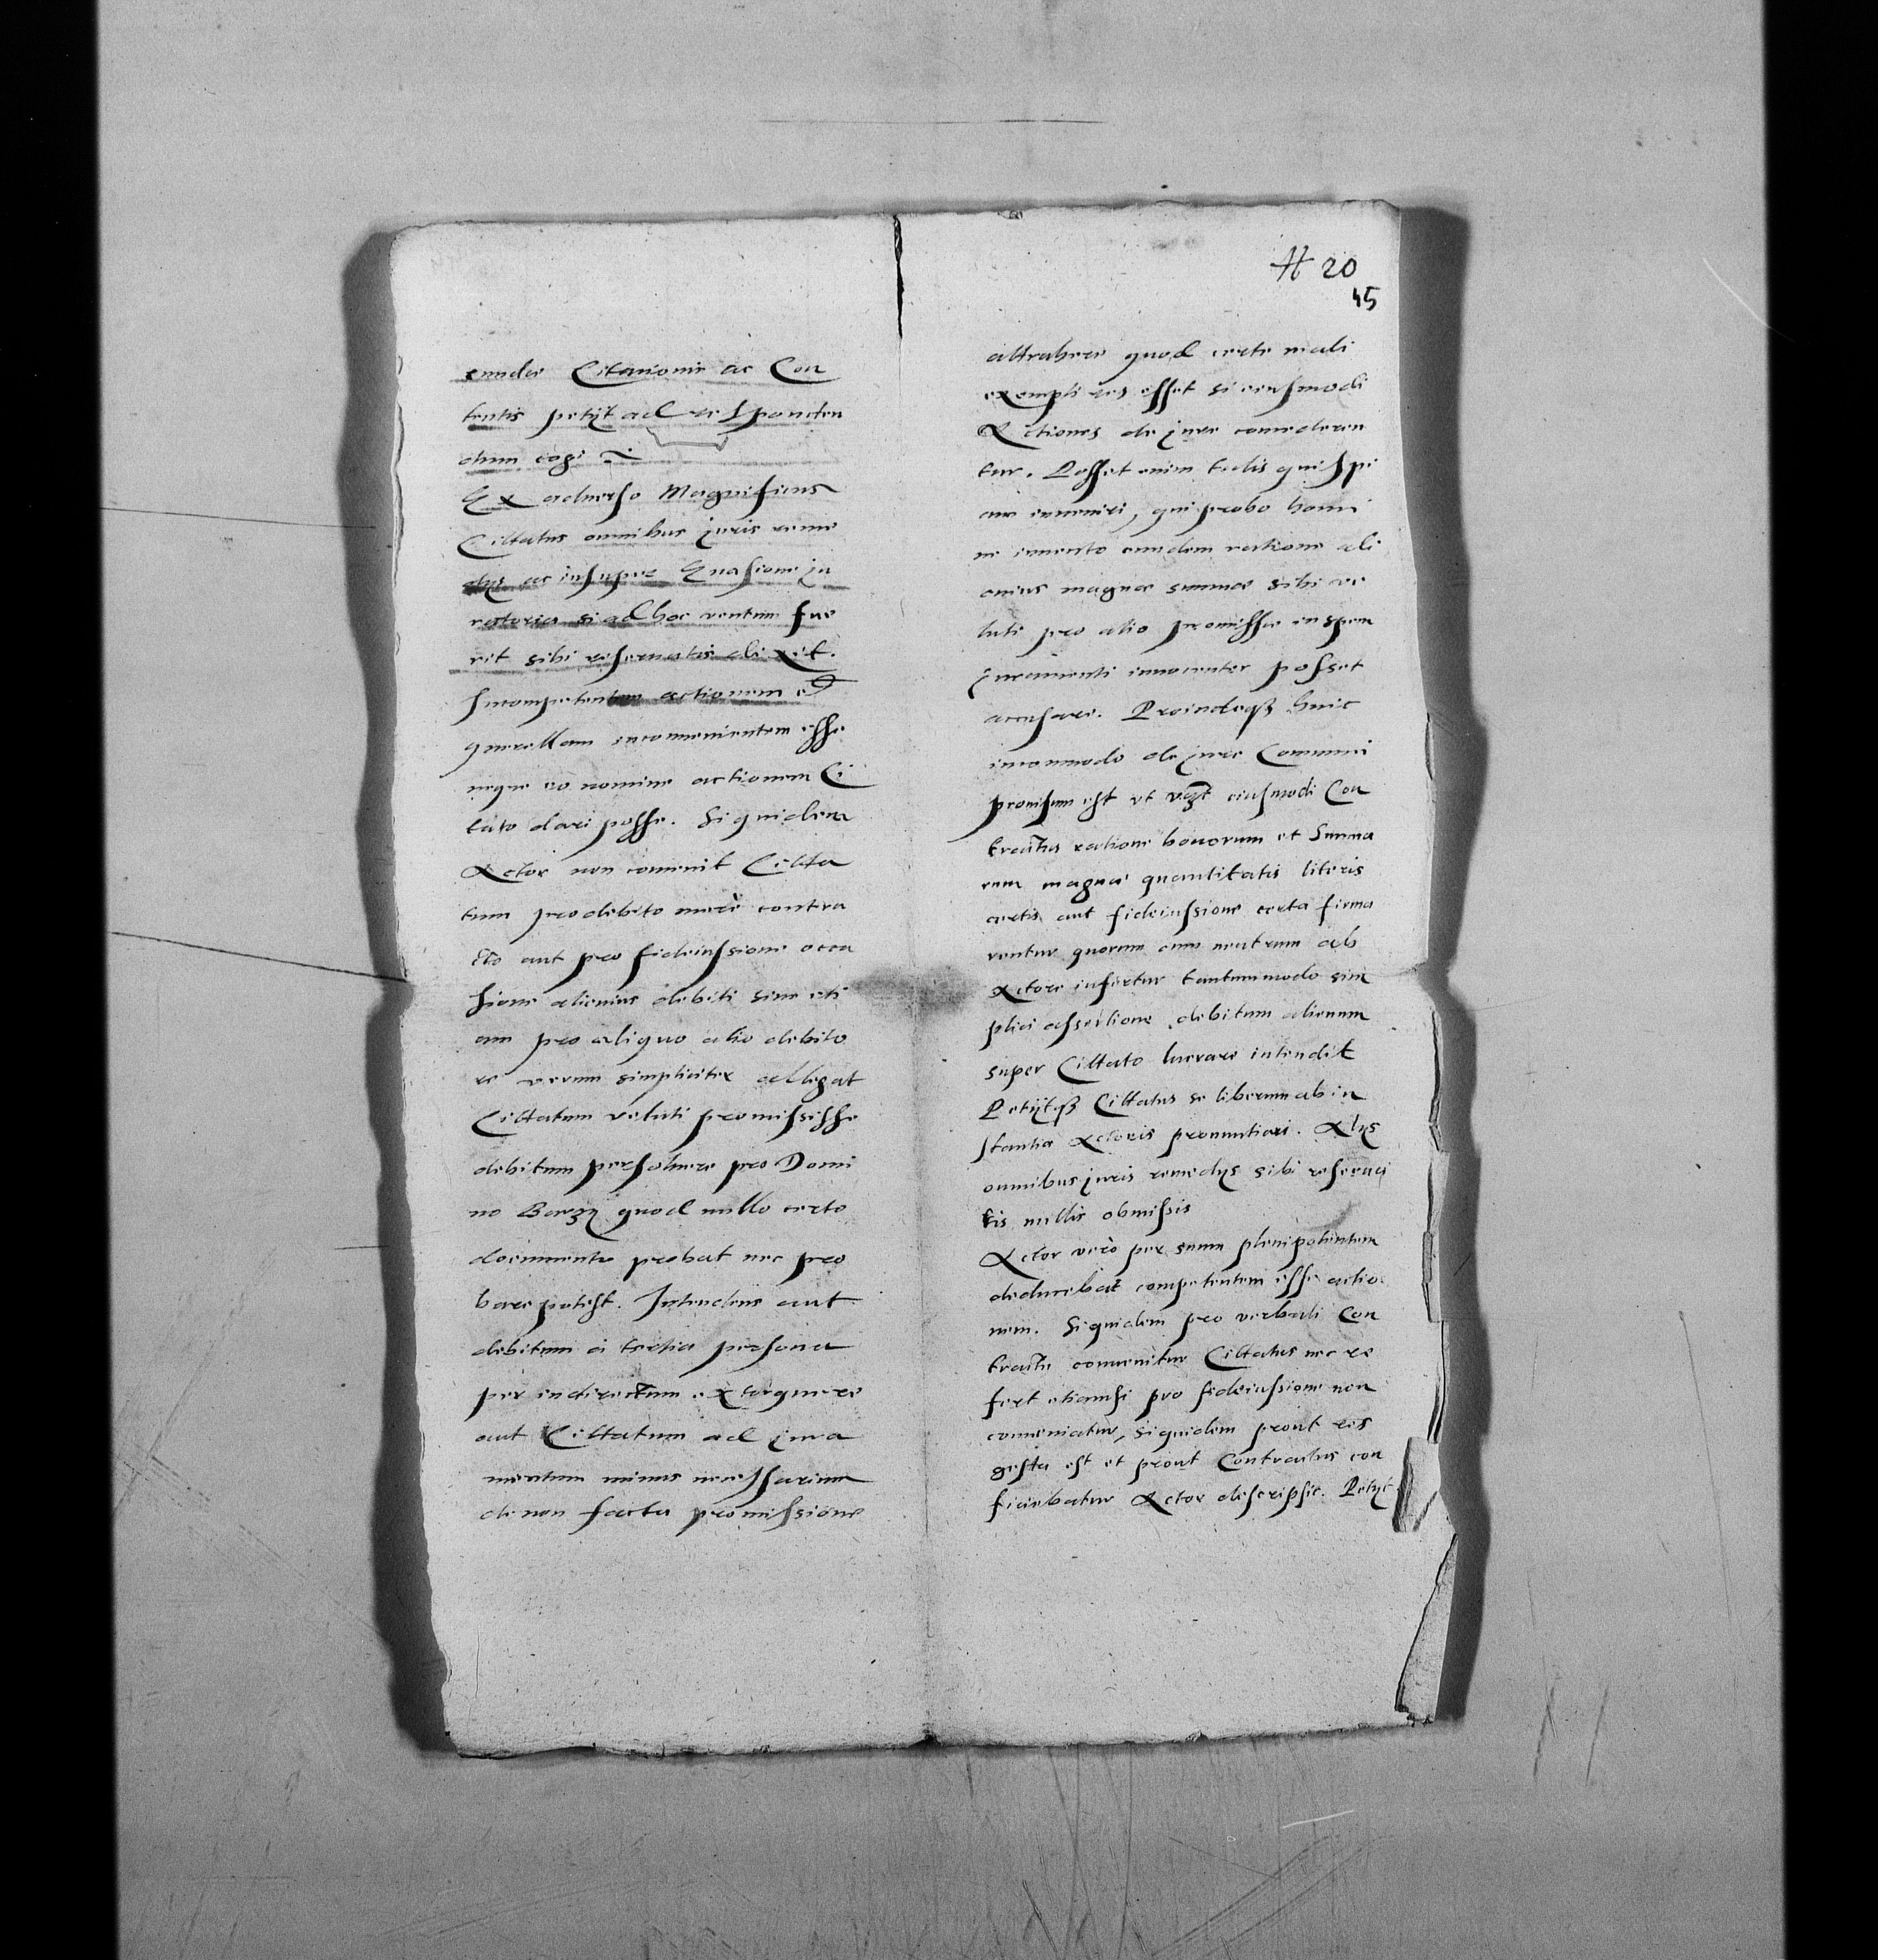 eundae Citationis ac Con
tentis petijt ad responden
dum cogi
Ex aduerso Magnificus
Cittatus omnibus juris reme
dijs ac insuper Euasione ju
ratoria si ad hoc ventum fue
rit sibi reseruatis dixit.
Incompetentem actionem et
querellam inconuenientem esse
neque eo nomine actionem Ci
tato dari posse. Siquidem
Actor non conuenit Citta
tum pro debito merè contra
cto aut pro fideiussione occa
sione alicuius debiti siue eti
am pro aliquo alio debito
re verum simpliciter allegat
Cittatum veluti promississe
debitum persoluere pro Domi
no Barzy quod nullo certo
documento probat nec pro
bare potest. Intendens aut
debitum à tertia persona
per indirectum extorquere
aut Cittatum ad jura
mentum minus necessarium
de non facta promissione
# 20
45
attrahere quod certe mali
exempli res esset si eiusmodi
Actiones de jure concederen
tur. Posset enim talis quispi
am inueniri, qui probo homi
ni inuento eundem ratione ali
cuius magnae summae sibi ve
luti pro alio promissae in spem
juramenti innocenter posset
accusare. Proindeque huic
incommodo de jure Communi
prouisum est vt vzt eiusmodi Con
tractus ratione bonorum et Summa
rum magnae quantitatis literis
certis aut fideiussione certa firma
rentur quorum cum neutrum ab
Actore infertur tantummodo sim
plici assertione debitum alienum
super Cittato lucrare intendit
Petijtque Cittatus se liberum ab in
stantia Actoris pronuntiari. Alijs
omnibus juris remedijs sibi reserua
tis nullis obmissis
Actor verò per suum plenipotentem
deducebat competentem esse actio
nem. Siquidem pro verbali Con
tractu conuenitur Cittatus nec re
fert etiamsi pro fideiussione non
conueniatur, siquidem prout res
gesta est et prout Contractus con
ficiebatur Actor descripsit. Petijt